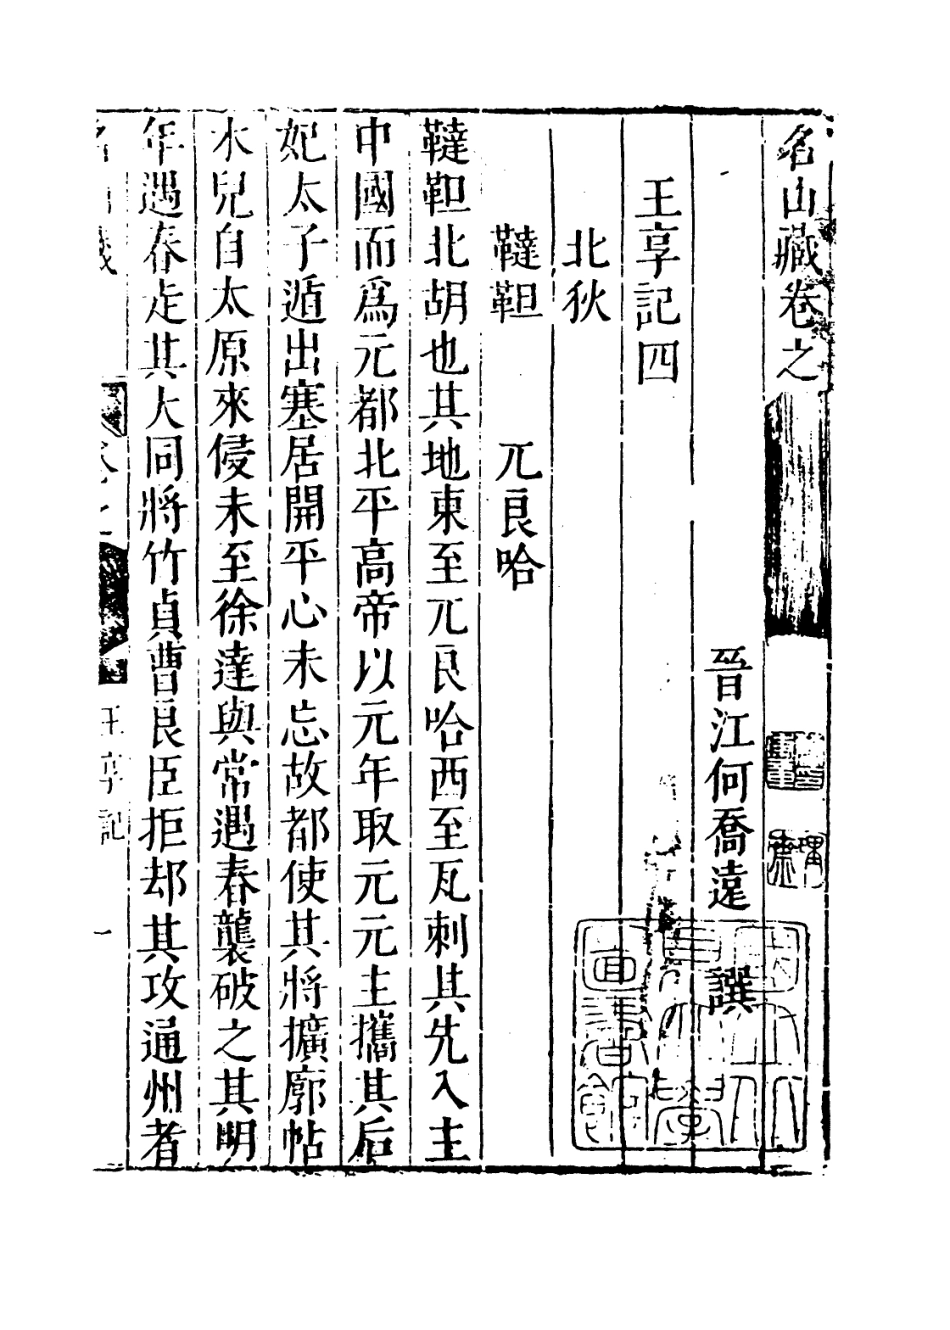 名山藏卷之
晉江何喬遠 譔
王享記四
北狄
韃靼 兀良哈
韃靼北胡也其地東至兀良哈西至瓦剌其先入主
中國而爲元都北平高帝以元年取元元主攜其后
妃太子遁出塞居開平心未忘故都使其將擴廓帖
木兒自太原來侵未至徐達與常遇春襲破之其明
年遇春走其大同將竹貞曹良臣拒却其攻通州者
名山藏 卷之 王享記 一